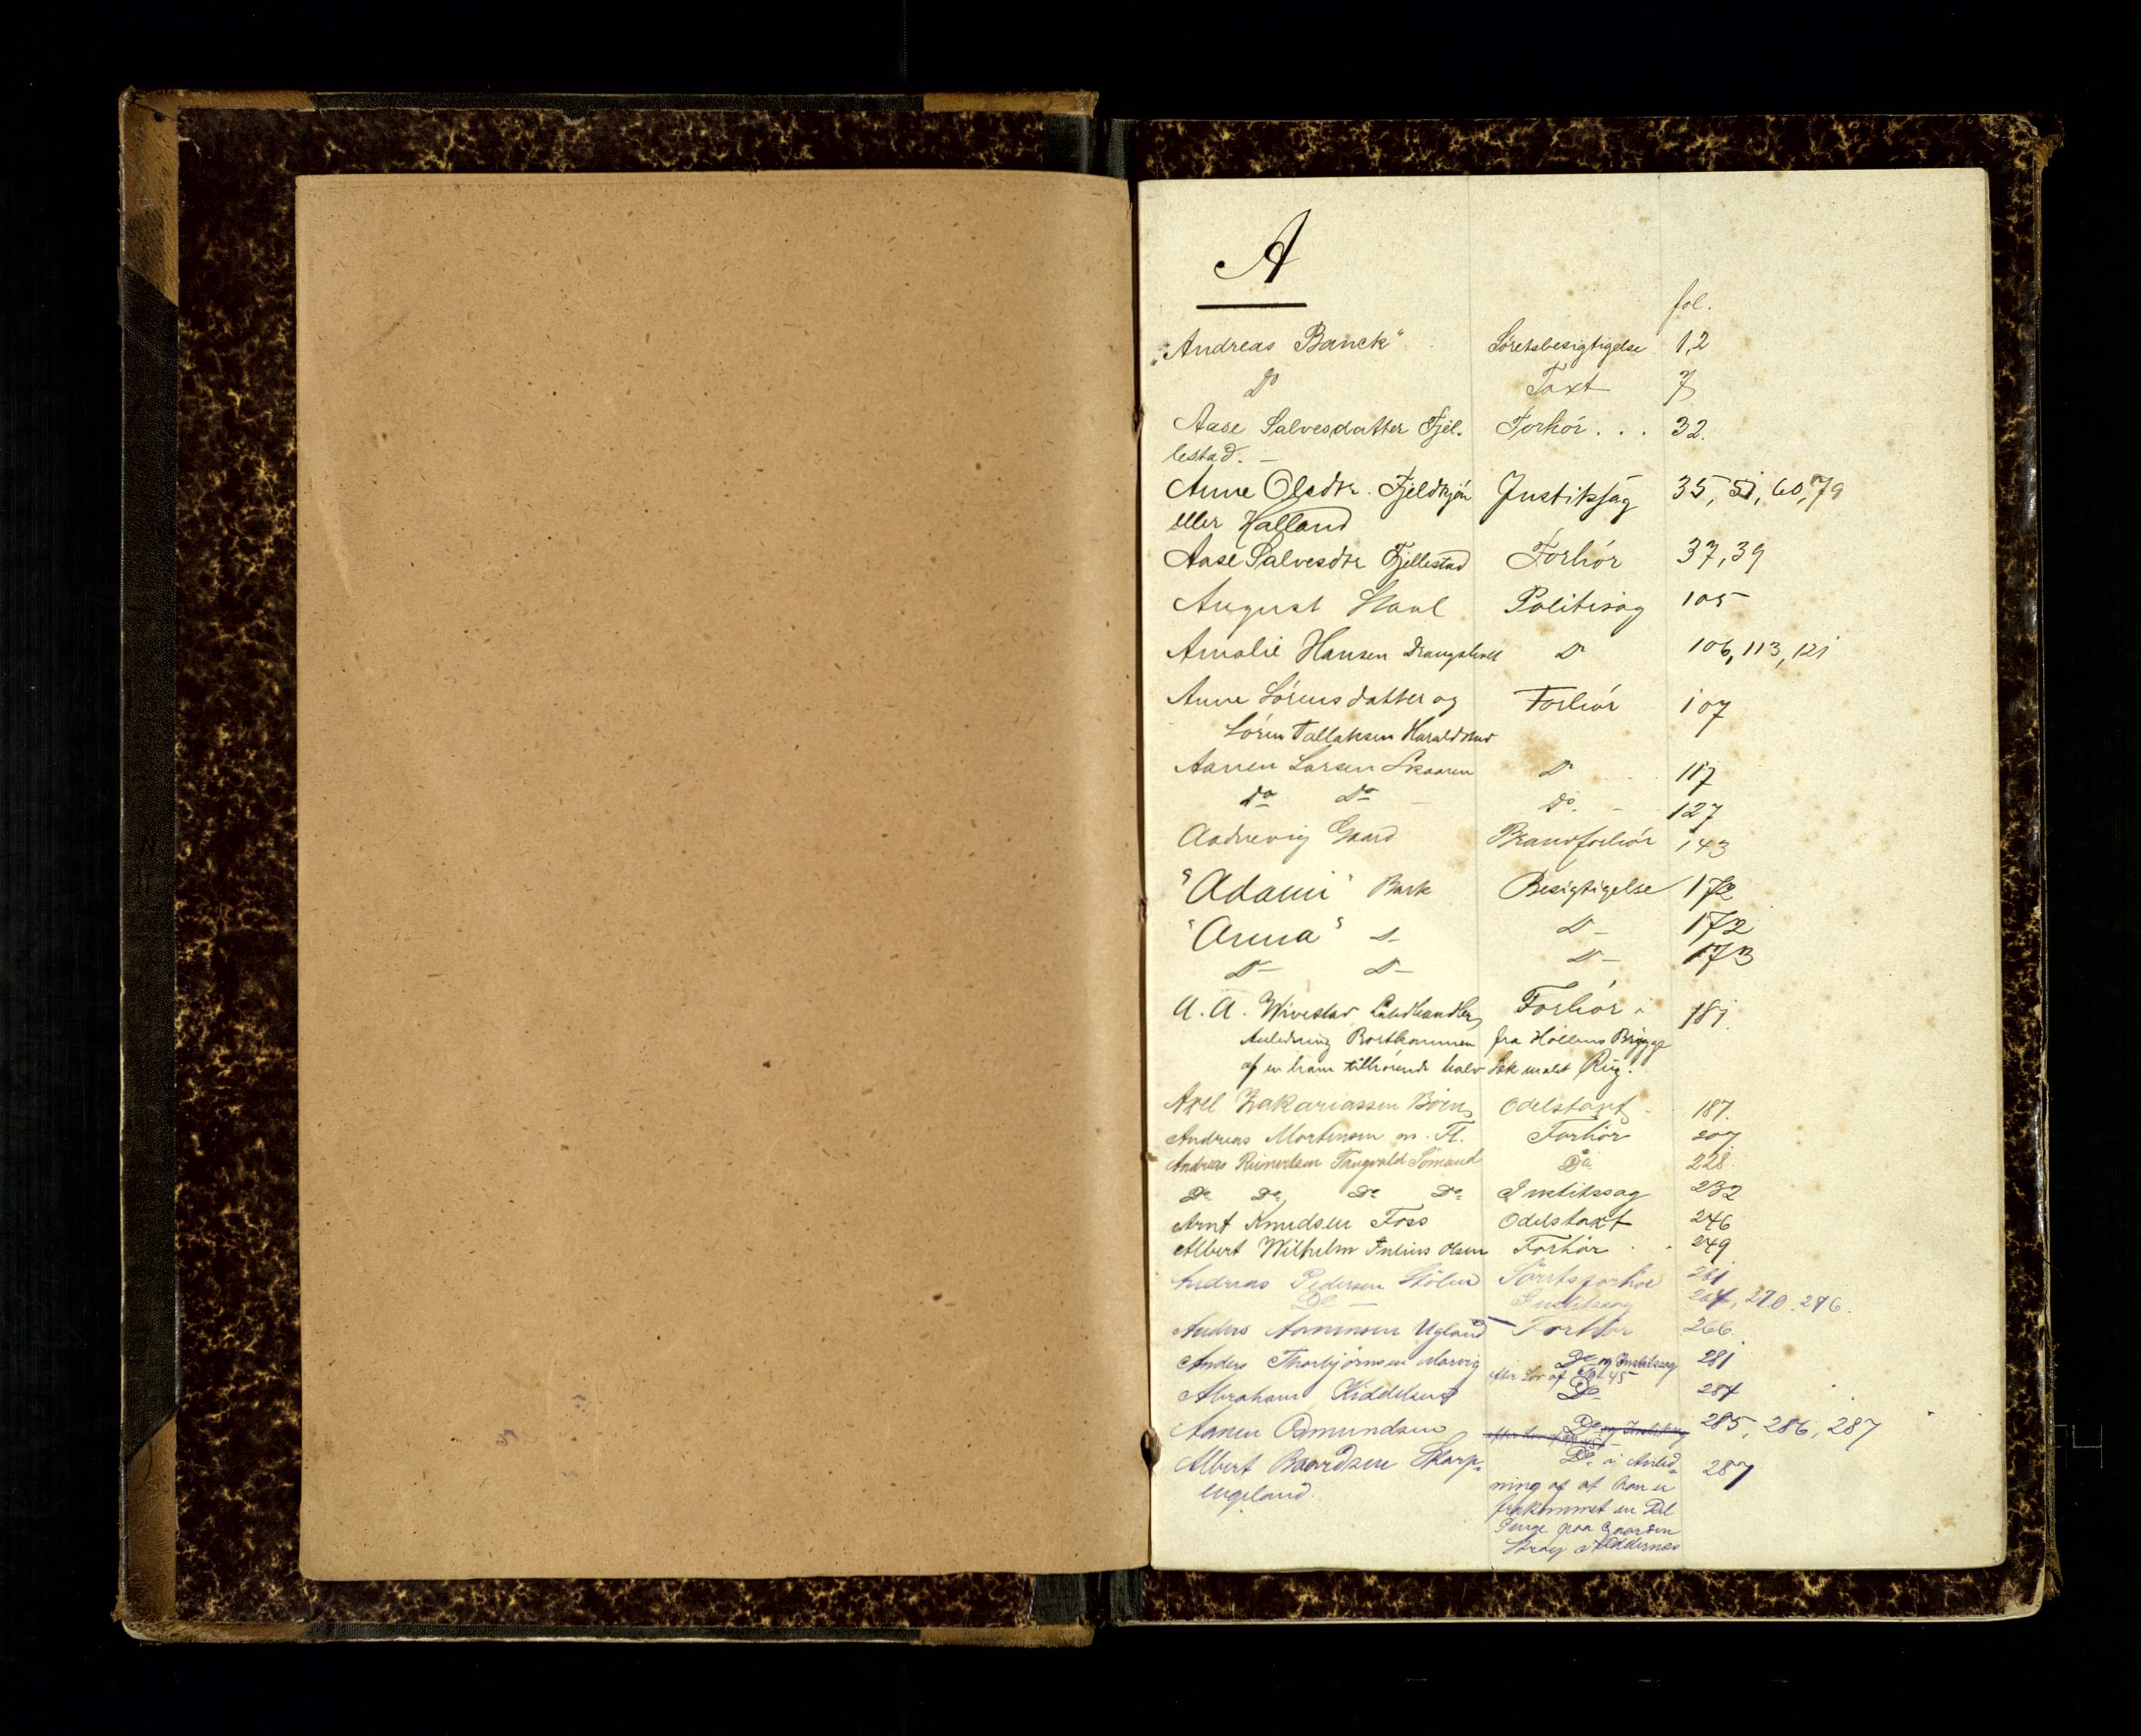 A
fol.
„Andreas Banck" Söretsbesigtigelse 1,2
Do Taxt 7
Aase Salvesdatter Fjel- Forhör . . . 32.
lestad. –
Anne Olsdtr. Fjeldsjön Justitssag 35, 51, 60, 79
eller Halland
Aase Salvesdtr Fjellestad Forhör 37, 39
August Staal Politisag 105
Amalie Hansen Drangsholt Do 106, 113, 121
Anne Sörensdatter og Forhör 107
Sören Tallaksen Haraldstad
Aanen Larsen Skaaren Do 117
do Do Do. – 127
Aadnevig Gaard Brandforhör 143
"Adami" Bark Besigtigelse 172
"Anna" D– D– 172
D– D– D– 173
A. A. Wivestad Landhandler, Forhör i 181.
Anledning Bortkommen fra Höllens Brygge
af en ham tilhörende halv Sæk malet Rug.
Axel Zakariassen Böen, Odelstaxt. 187.
Andreas Mortensen m. Fl. Forhör 207
Andreas Reinertsen Tangvald Sömand Do 228.
Do Do, Do Do Justitssag 232
Arnt Knudsen Foss Odelstaxt 246
Albert Wilhelm Julius Olsen Forhör . . 249
Andreas Pedersen Stölen Söretsforhör 261
Do – Justitssag 264, 270. 276.
Anders Aanensen Ugland – Forhör 266.
Anders Thorbjörnsen Norvig Do og Justitssag 281
efter Lov af 45
Abraham Kiddelsen Do 284
Aanen Osmundsen Do og Justitssag 285, 286, 287
Albert Baardsen Skarp- Do i Anled- 287
engeland. ning af at han er
frakommet en Del
Penge paa Gaarden
Stray i Oddernes